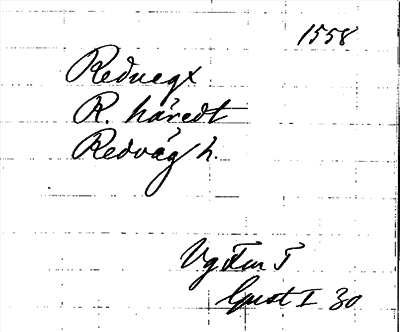 1558
Redvegx
R. häredt
Redväg h.
Vg Fm 5
Gust I 30